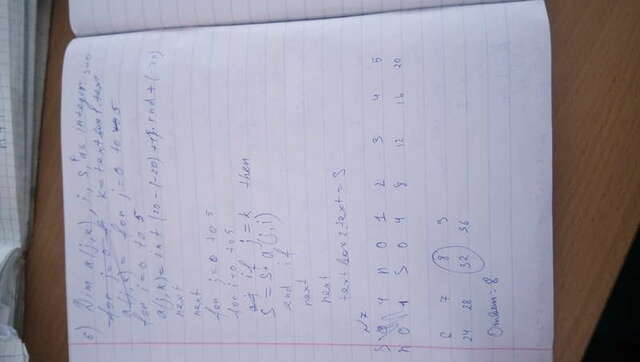 6) Dim a(j,k), i, S, k as integer S=0
for j=0 to k=textbox1.text
a(j,k)= for j=0 to 5
for i=0 to 5
a(j,k)=int (20-(-20)+1)*rnd+(-20)
next
next
for j=0 to 5
for i=0 to 5
if j=k then
S=S+a(j,i)
end if
next
next
textbox2.text=S
N7
S 0 4 n 0 1 2 3 4 5
n 0 1 S 0 4 8 12 16 20
6 7 8 9
24 28 32 36
Ответ: 8